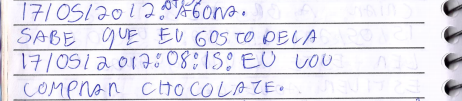 17/05/2012: AGORA.
SABE QUE EU GOSTO DELA
17/05/2012:08:15: EU VOU
COMPRAR CHOCOLATE.